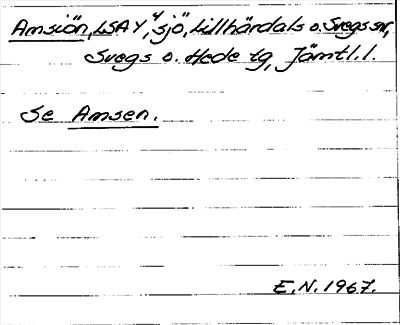 Amsiön, LSA Y, "sjö", Lillhärdals o. Svegs snr,
Svegs o. Hede tg, Jämtl. l.
Se Amsen.
E.N. 1967.